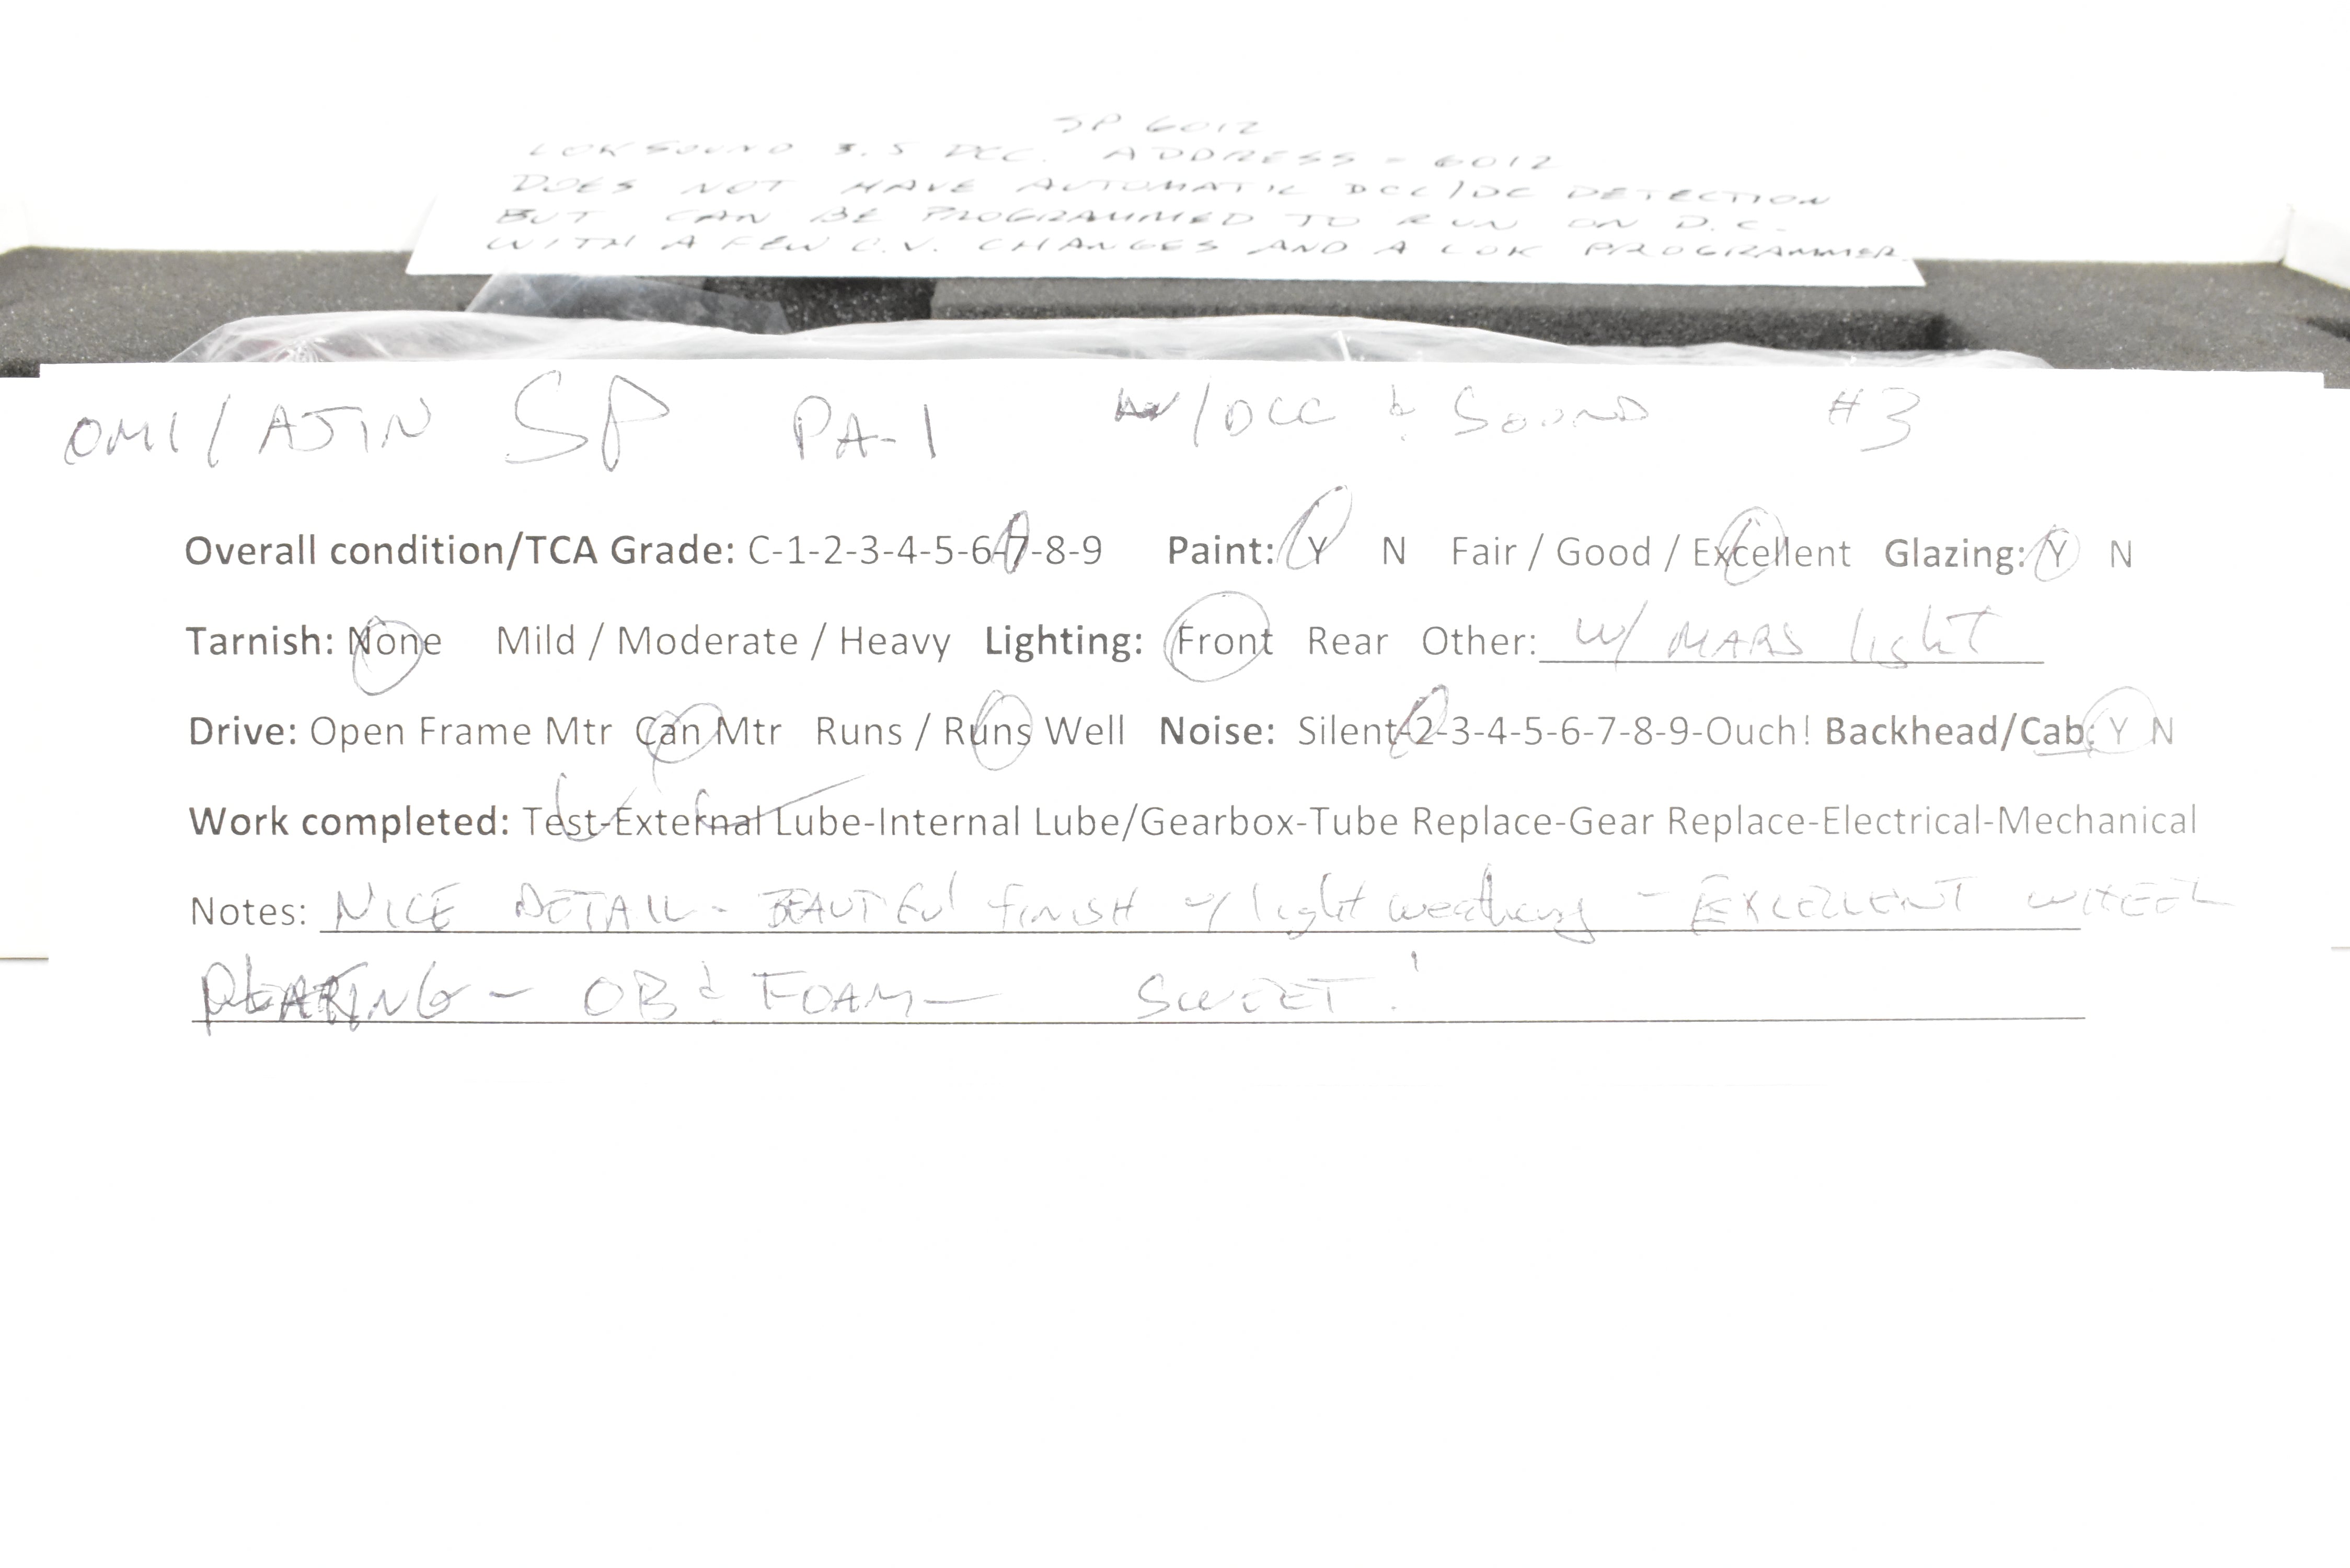 SP 6012
LOKSOUND 3.5 DCC. ADDRESS = 6012
DOES NOT HAVE AUTOMATIC DCC/DC DETECTION
BUT CAN BE PROGRAMMED TO RUN ON D.C.
WITH A FEW C.V. CHANGES AND A LOK PROGRAMMER.
OMI/AJIN SP PA-1 W/DCC & SOUND #3
Overall condition/TCA Grade: C-1-2-3-4-5-6-7-8-9 Paint: Y N Fair / Good / Excellent Glazing: Y N
Tarnish: None Mild / Moderate / Heavy Lighting: Front Rear Other: W/ MARS light
Drive: Open Frame Mtr Can Mtr Runs / Runs Well Noise: Silent-2-3-4-5-6-7-8-9-Ouch! Backhead/Cab: Y N
Work completed: Test-External Lube-Internal Lube/Gearbox-Tube Replace-Gear Replace-Electrical-Mechanical
Notes: NICE DETAIL - BEAUTIFUL FINISH w/ light weathering - EXCELLENT WHEEL
- OB & FOAM - SWEET!